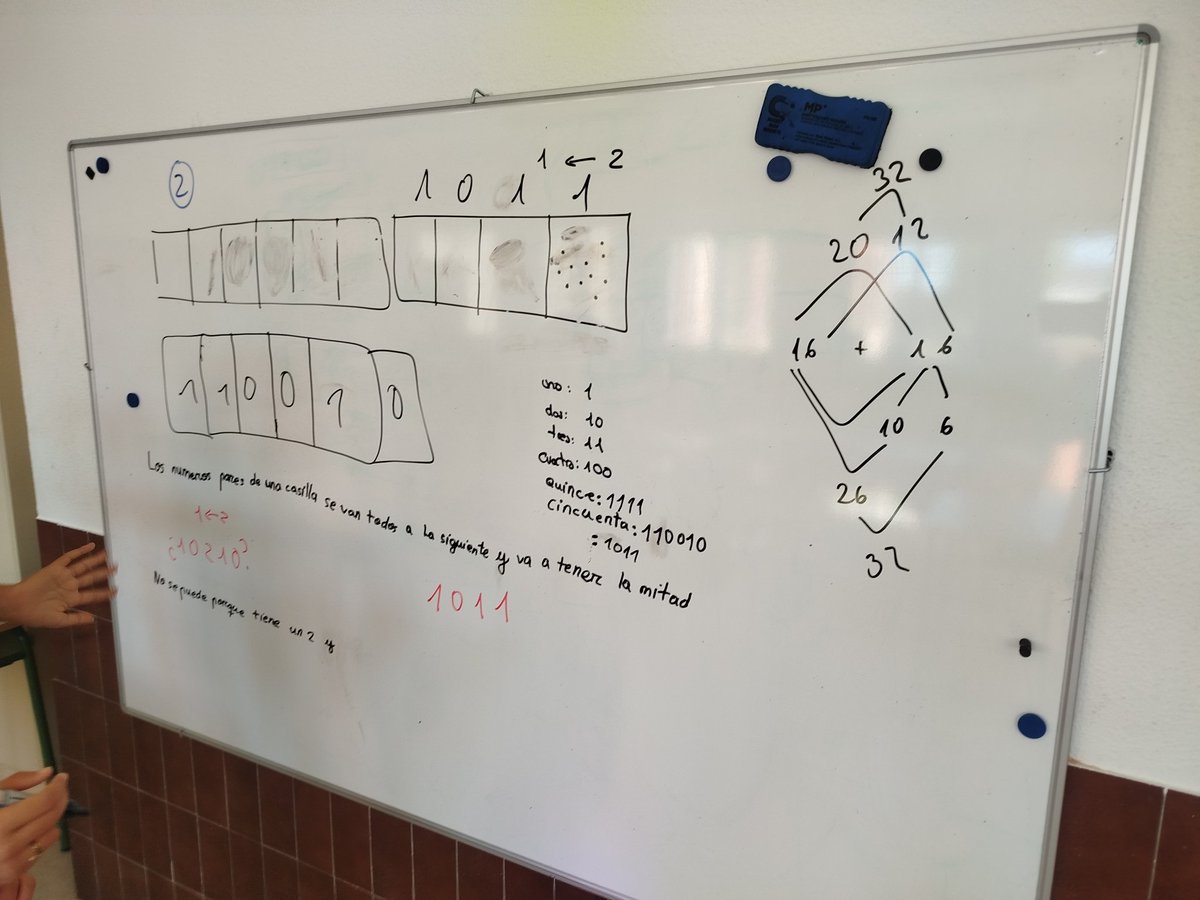 2
1 ← 2
1 0 1 1
1 1 0 0 1 0
uno: 1
dos: 10
tres: 11
cuatro: 100
quince: 1111
cincuenta: 110010
= 1011
Los numeros pares de una casilla se van todos a la siguiente y va a tener la mitad
1←2
¿10210?
No se puede porque tiene un 2 y
1011
MP
32
20 12
16 + 16
10 6
26
32